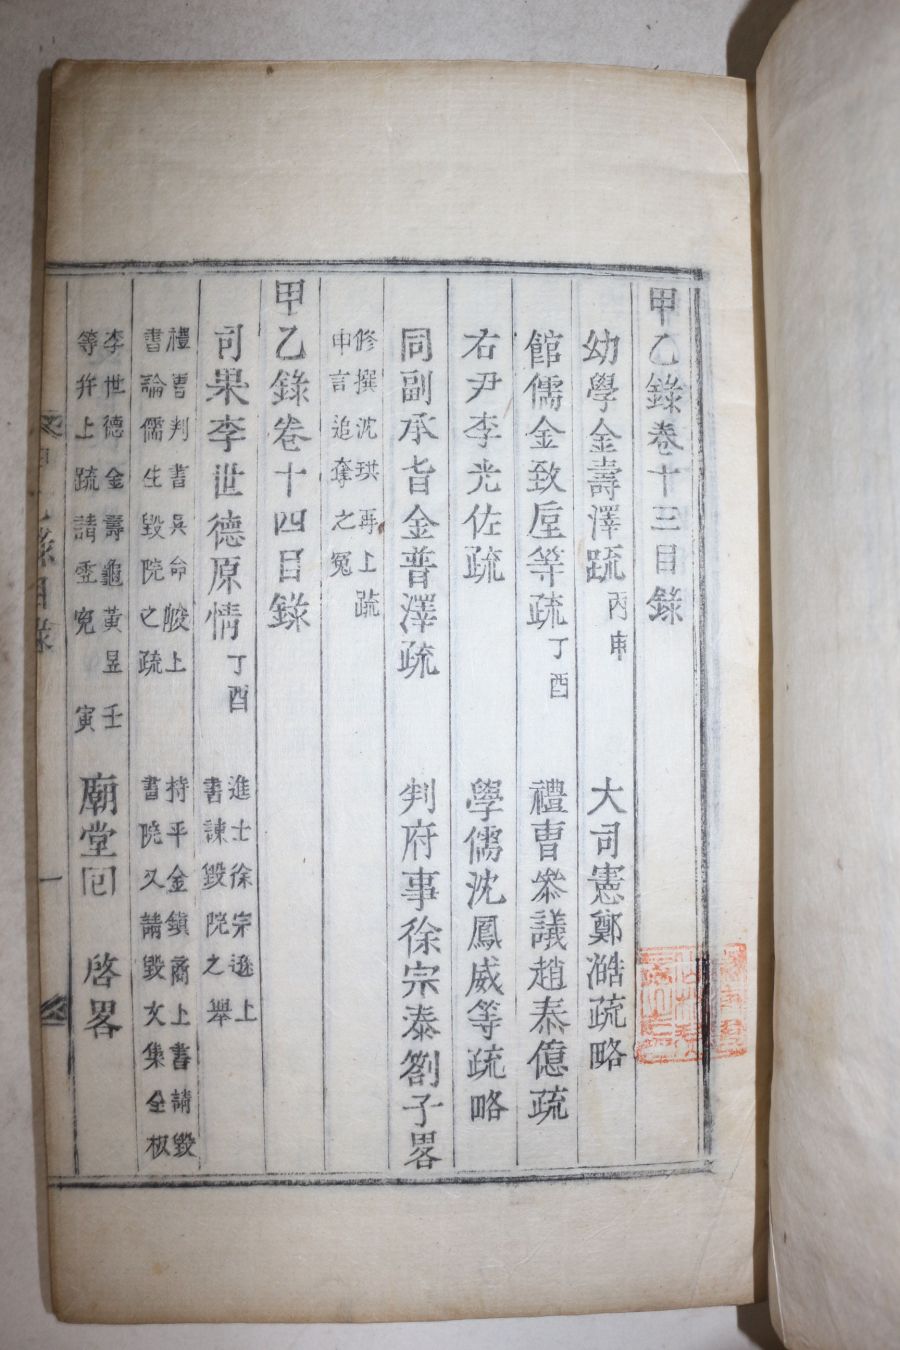 甲乙錄卷十三目錄
幼學金壽澤疏 丙申 大司憲鄭澔疏略
館儒金致垕等疏 丁酉 禮曹參議趙泰億疏
右尹李光佐疏 學儒沈鳳威等疏略
同副承旨金普澤疏 判府事徐宗泰劄子畧
修撰沈珙再上疏
申言追奪之冤
甲乙錄卷十四目錄
司果李世德原情 丁酉 進士徐宗遜上
書諫毀院之舉
禮曹判書吳命峻上
書論儒生毀院之疏
持平金鎮商上書請毀
書院又請毀文集全板
李世德金壽龜黃昱 壬
等幷上疏請雪冤 寅
廟堂回 啓畧
一